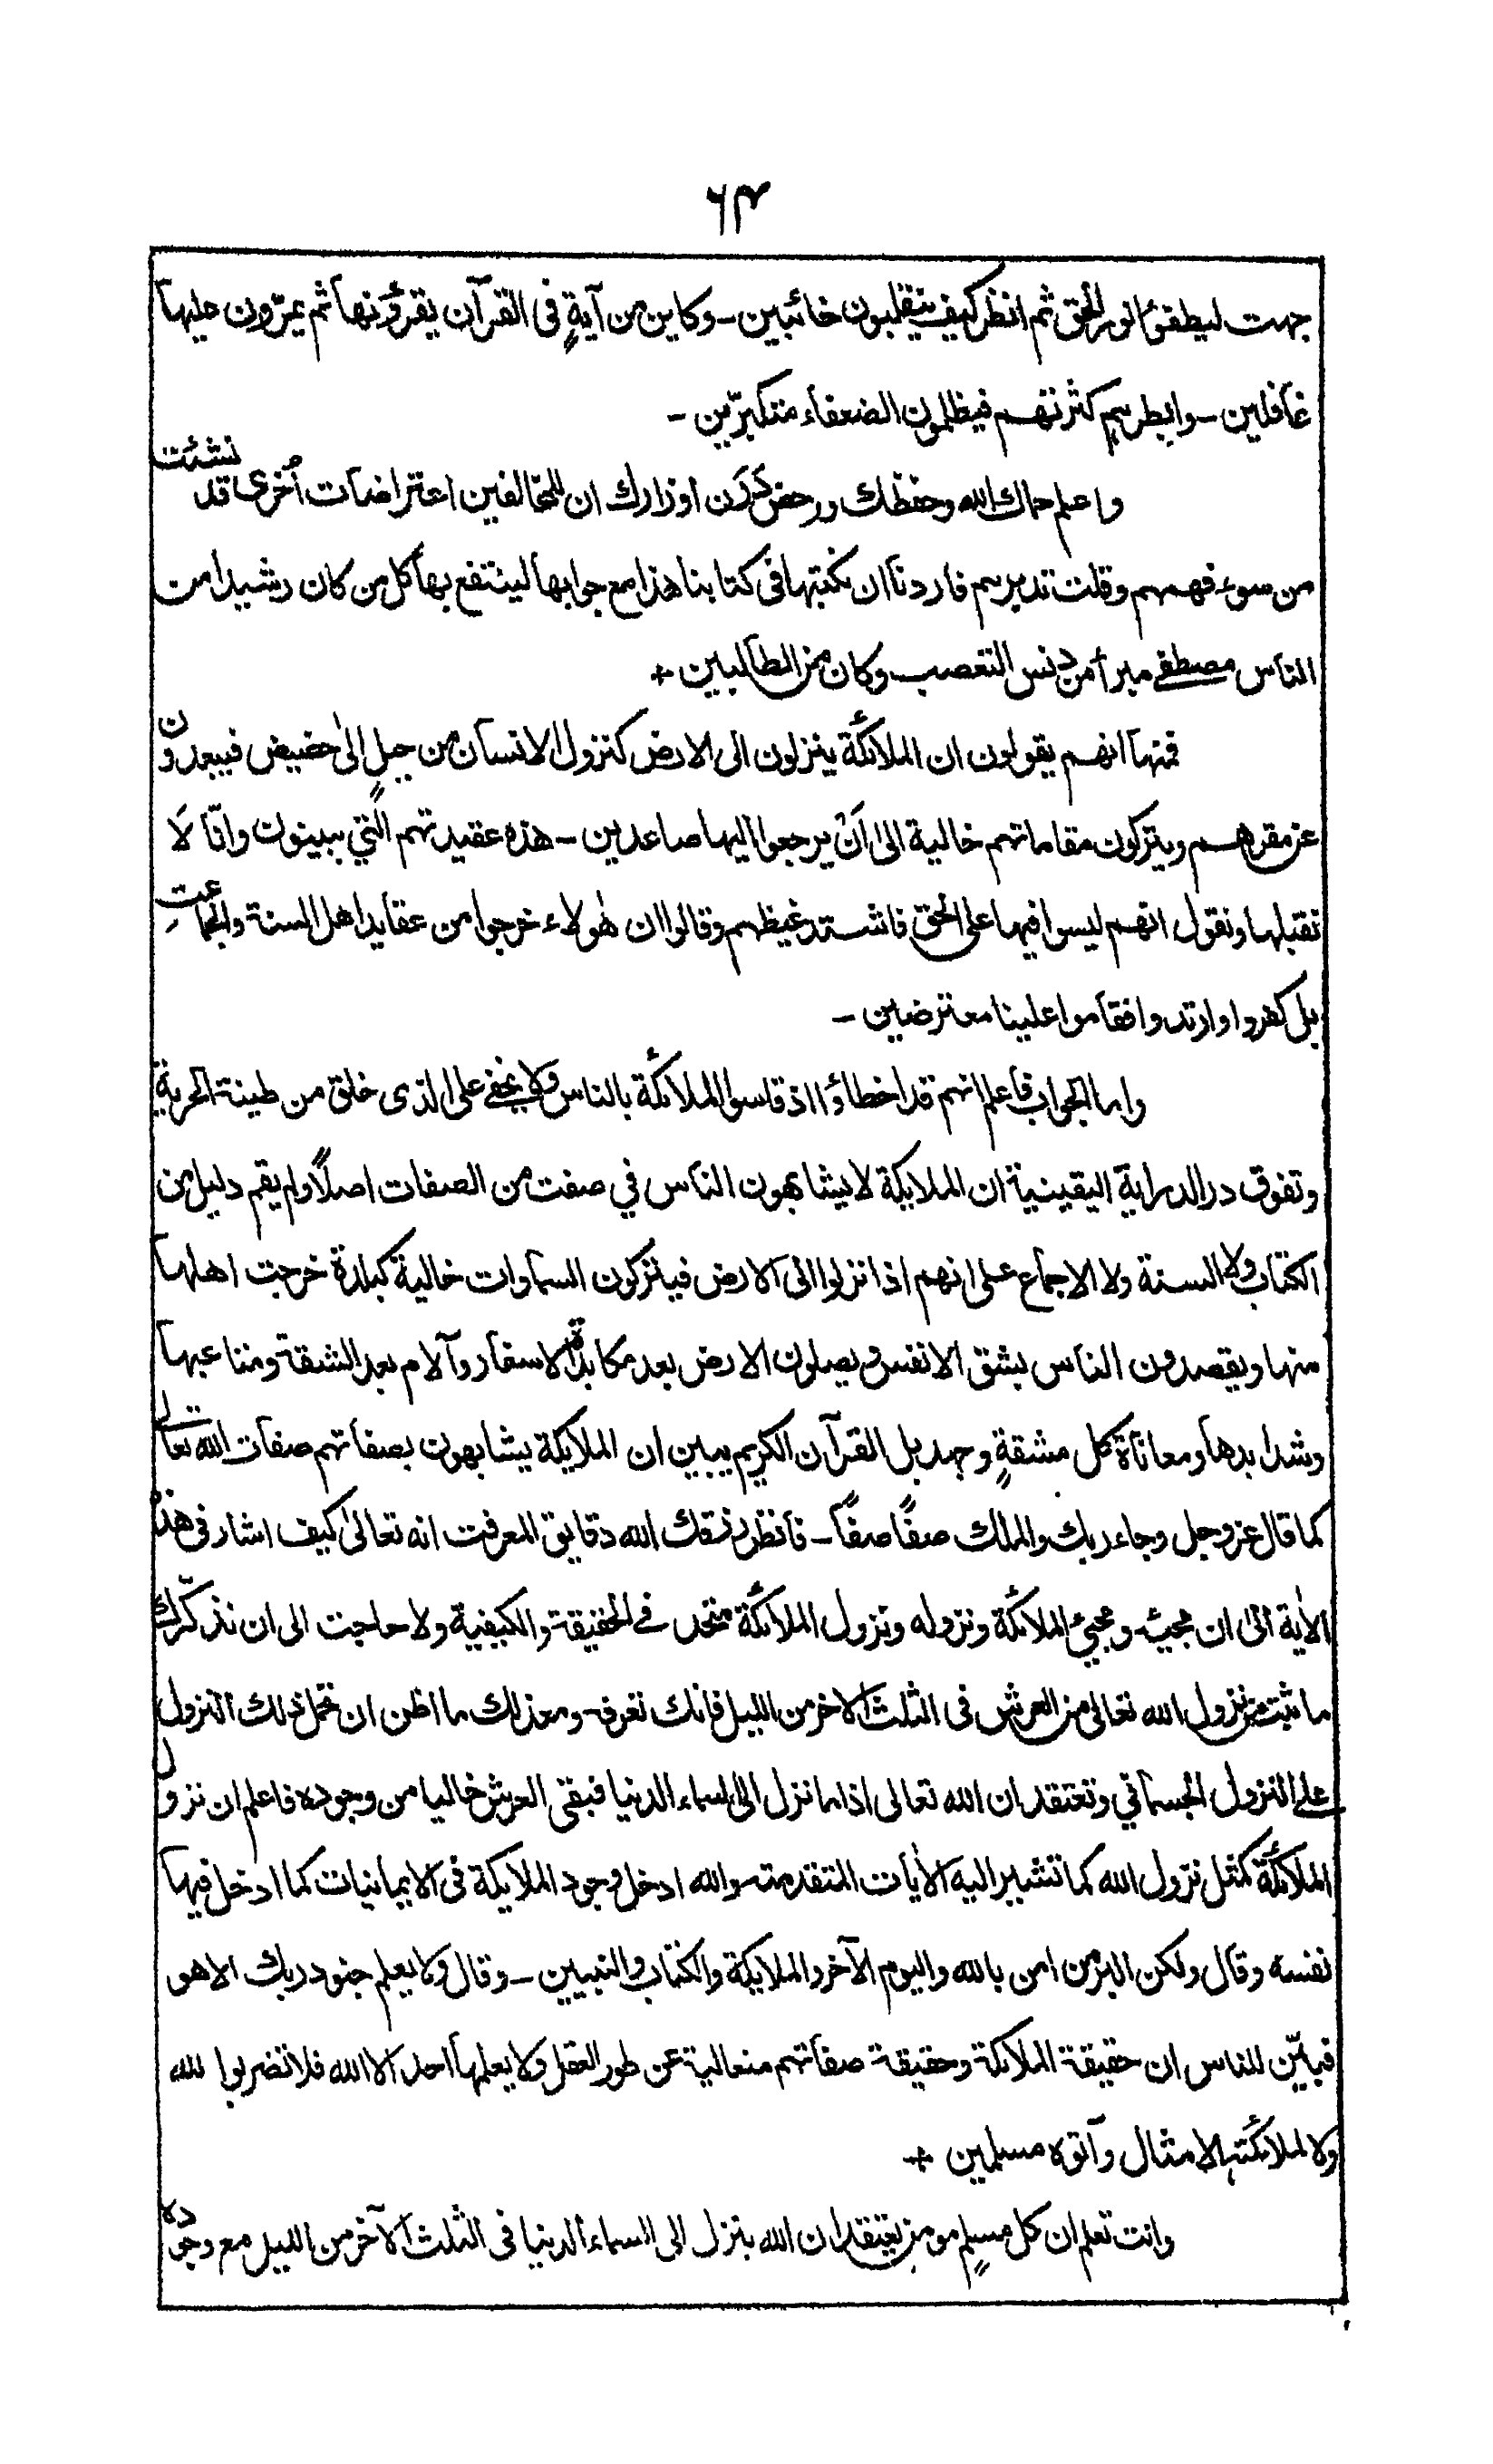 ۶۴
جهت ليطفئوا نور الحق ثم انظر كيف ينقلبون خائبين ـ وكاين من آيةٍ فى القرآن يقرؤنها ثم يمرّون عليها
غافلين ـ وابطرهم كثرتهم فيظلمون الضعفاء متكبرّين ـ
واعلم حماك الله وحفظك ورحض دَرَن أوزارك ان للمخالفين اعتراضات اُخرى قد نشئت
من سوء فهمهم وقلت تدبرهم فاردنا ان نكتبها فى كتابنا هذا مع جوابها لينتفع بها كل من كان رشيدا من
الناس مصطفے مبرأ من دنس التعصب وكان من الطالبين +
فمنها انهم يقولون ان الملائكة ينزلون الى الارض كنزول الانسان من جبلٍ الىٰ حضيض فيبعدون
عن مقرهم ويتركون مقاماتهم خالية الىٰ اَنْ يرجعوا اليها صاعدين ـ هذه عقيدتهم التي يبينون وانّا لا
نقبلها ونقول انهم ليسوا فيها على الحق فاشتد غيظهم وقالوا ان هٰولاء خرجوا من عقايد اهل السنة والجماعتِ
بل كفروا وارتدوا فقاموا علينا معترضين ـ
واما الجواب فاعلم انهم قد اخطاؤا اذ قاسوا الملائكة بالناس ولا يخفے على الذى خلق من طينة الحرية
وتفوق در الدراية اليقينية ان الملايكة لا يشابهون الناس في صفت من الصفات اصلاً ولم يقم دليل من
الكتاب ولا السنة ولا الاجماع على انهم اذا نزلوا الى الارض فيتركون السماوات خالية كبلدة خرجت اهلها
منها ويقصدون الناس بشق الانفس ويصلون الارض بعد مكابدة الاسفار وآلام بعد الشقة ومتاعبها
وشدايدها ومعاناة كل مشقةٍ وجهد بل القرآن الكريم يبين ان الملايكة يشابهون بصفاتهم صفات الله تعالى
كما قال عزوجل وجاء ربك والملك صفًا صفًا ـ فانظر رزقك الله دقايق المعرفت انه تعالىٰ كيف اشار فى هذه
الاٰية الى ان مجيئه ومجيئ الملائكة ونزوله ونزول الملائكة متحد فے الحقيقة والكيفية ولا حاجت الى ان نذكّرك
ما ثبت من نزول الله تعالى من العرش فى الثلث الاخر من الليل فانك تعرفه ومعذلك ما اظن ان تحمل ذلك النزول
على النزول الجسمانى وتعتقد ان الله تعالى اذا ما نزل الى السماء الدنيا فبقى العرش خاليا من وجوده فاعلم ان نزول
الملائكة كمثل نزول الله كما تشير اليه الاٰيات المتقدمة والله ادخل وجود الملايكة فى الايمانيات كما ادخل فيها
نفسه وقال ولكن البر من امن بالله واليوم الآخر والملايكة والكتاب والنبيين ـ وقال ولا يعلم جنود ربك الا هو
فبيّن للناس ان حقيقة الملائكة وحقيقة صفاتهم متعالية عن طور العقل ولا يعلمها احد الا الله فلا تضربوا لله
ولا لملائكته الامثال وآتوه مسلمين +
وانت تعلم ان كل مسلمٍ مومن يعتقد ان الله ينزل الى السماء الدنيا فى الثلث الآخر من الليل مع وجوده